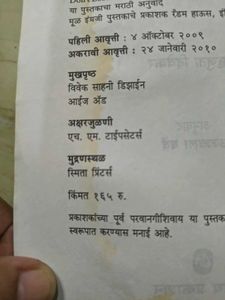 या पुस्तकाचा मराठी अनुवाद
मूळ इंग्रजी पुस्तकाचे प्रकाशक रँडम हाऊस,
पहिली आवृत्ती : ४ ऑक्टोबर २००९
अकरावी आवृत्ती : २४ जानेवारी २०१०
मुखपृष्ठ
विवेक साहनी डिझाईन
आईज अँड
अक्षरजुळणी
एच. एम. टाईपसेटर्स
मुद्रणस्थळ
स्मिता प्रिंटर्स
किंमत १६५ रु.
प्रकाशकांच्या पूर्व परवानगीशिवाय या पुस्तक
स्वरूपात करण्यास मनाई आहे.